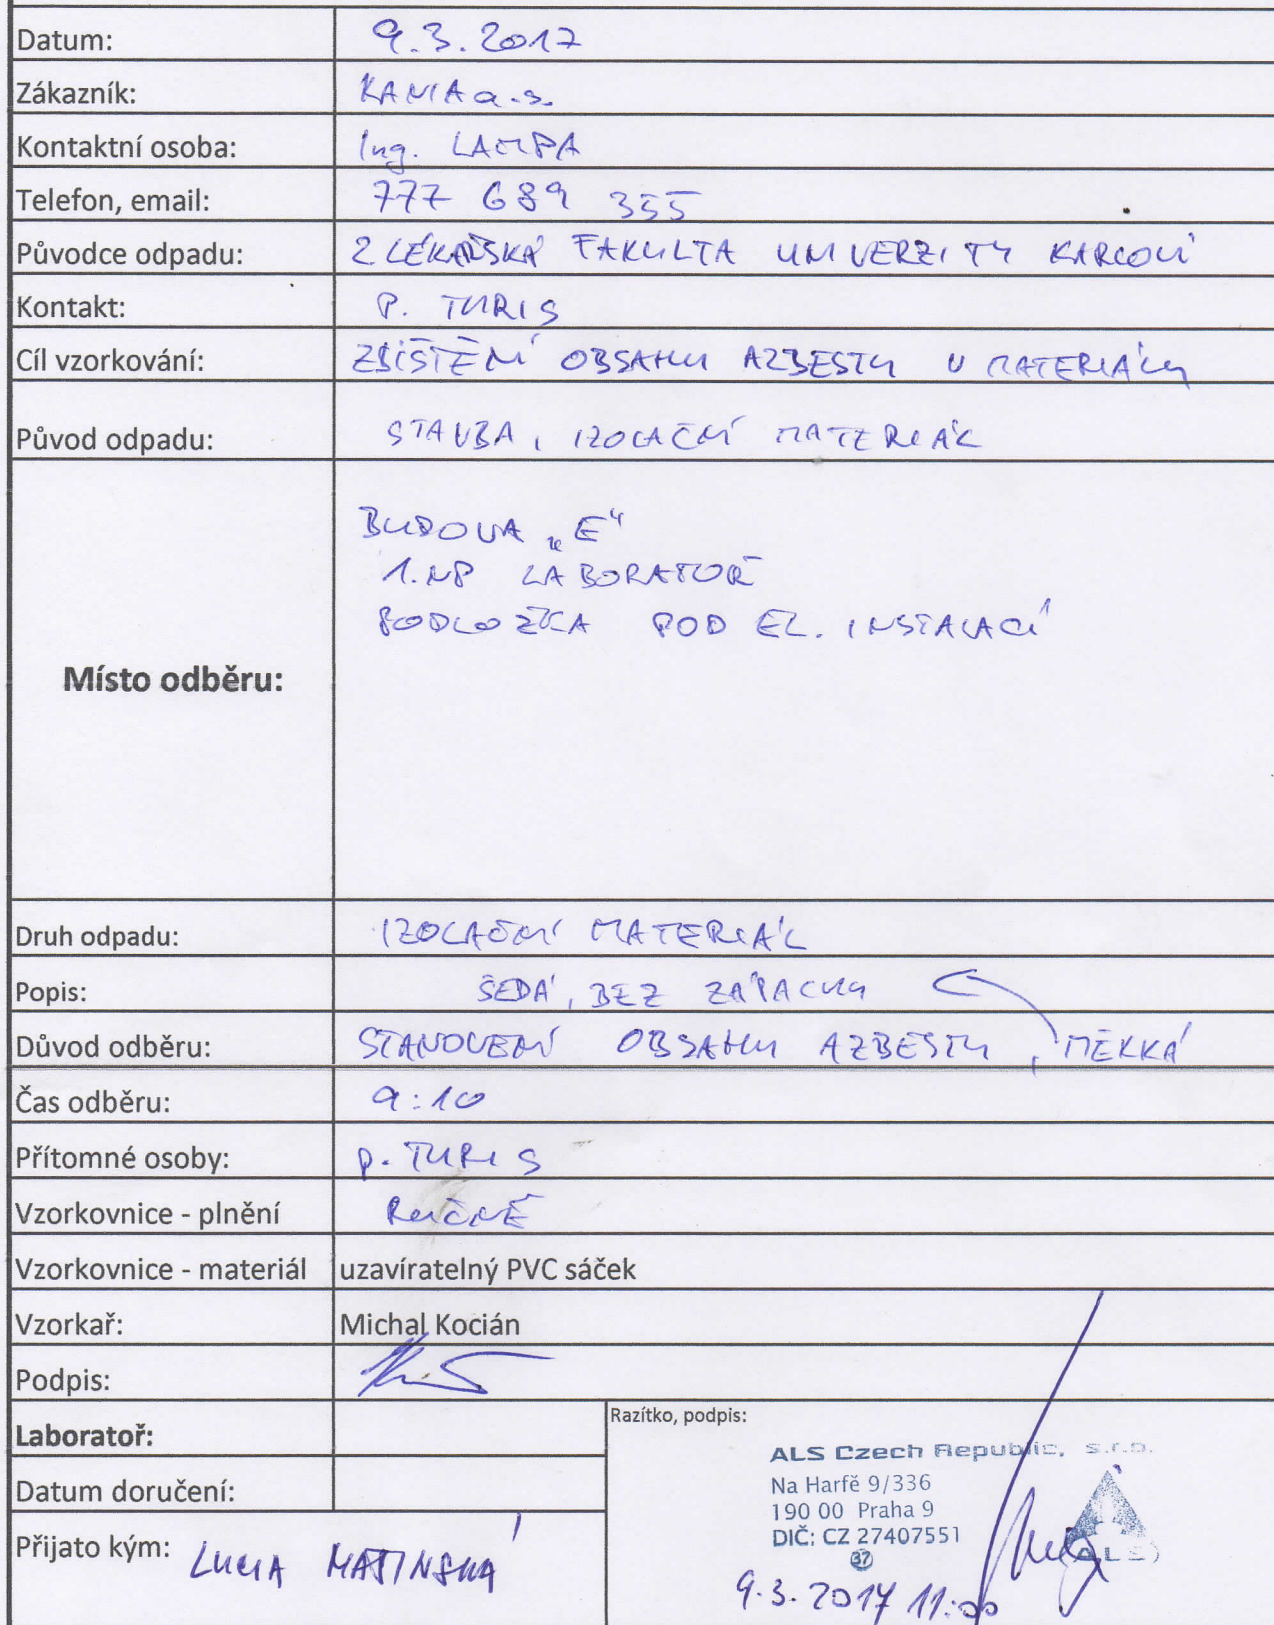 Datum: 9.3.2017
Zákazník: KANIA a.s.
Kontaktní osoba: Ing. LAMPA
Telefon, email: 777 689 355
Původce odpadu: 2 LÉKAŘSKÁ FAKULTA UNIVERZITY KARLOVI
Kontakt: P. TURIS
Cíl vzorkování: ZJIŠTĚNÍ OBSAHU AZBESTU V MATERIÁLU
Původ odpadu: STAVBA, IZOLAČNÍ MATERIÁL
BUDOVA „E“
1.NP LABORATOŘ
PODLOŽKA POD EL. INSTALACÍ
Místo odběru:
Druh odpadu: IZOLAČNÍ MATERIÁL
Popis: ŠEDÁ, BEZ ZÁPACHU
Důvod odběru: STANOVENÍ OBSAHU AZBESTU , MĚKKÁ
Čas odběru: 9:10
Přítomné osoby: p. TURIS
Vzorkovnice - plnění RUČNĚ
Vzorkovnice - materiál uzavíratelný PVC sáček
Vzorkař: Michal Kocián
Podpis:
Laboratoř:
Razítko, podpis:
ALS Czech Republic, s.r.o.
Na Harfě 9/336
190 00 Praha 9
DIČ: CZ 27407551
37
ALS
9.3.2017 11:00
Datum doručení:
Přijato kým: LUCIA